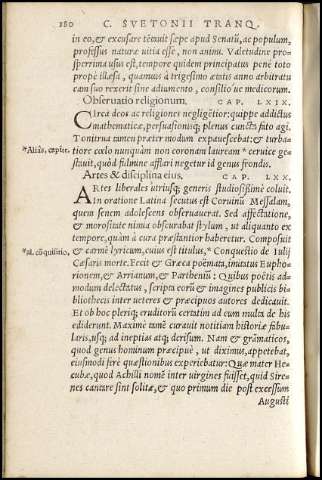 180 C. SVETONII TRANQ.
in eo, & excusare tētauit sæpe apud Senatū, ac populum,
professus naturæ uitia esse, non animi. Valetudine pro-
sperrima usus est, tempore quidem principatus penè toto
propè illæsa, quamuis à trigesimo ætatis anno arbitratu
eam suo rexerit sine adiumento, consilio´ue medicorum.
Obseruatio religionum. CAP. LXIX.
Circa deos ac religiones negligẽtior: quippe addictus
mathematicæ, persuasionisq; plenus cuncta fato agi.
Tonitrua tamen præter modum expauescebat: & turba-
*Aliàs, capite. tiore cœlo nunquàm non coronam lauream * ceruice ge-
stauit, quòd fulmine afflari negetur id genus frondis.
Artes & disciplina eius. CAP. LXX.
Artes liberales utriusq; generis studiosissimè coluit.
In oratione Latina secutus est Coruinū Messalam,
quem senem adolescens obseruauerat. Sed affectatione,
& morositate nimia obscurabat stylum, ut aliquanto ex
tempore, quàm à cura præstantior haberetur. Composuit
*al. cōquisitio, & carmē lyricum, cuius est titulus, * Conquestio de Iulij
Cæsaris morte. Fecit & Græca poëmata, imitatus Eupho-
rionem, & Arrianum, & Partheniū: Quibus poëtis ad-
modum delectatus, scripta eorū & imagines publicis bi-
bliothecis inter ueteres & præcipuos autores dedicauit.
Et ob hoc pleriq; eruditorū certatim ad eum multa de his
ediderunt. Maximè tamē curauit notitiam historiæ fabu-
laris, usq; ad ineptias atq; derisum. Nam & grāmaticos,
quod genus hominum præcipuè, ut diximus, appetebat,
eiusmodi ferè quæstionibus experiebatur: Quæ mater He-
cubæ, quod Achilli nomē inter uirgines fuisset, quid Sire-
nes cantare sint solitæ, & quo primum die post excessum
Augusti